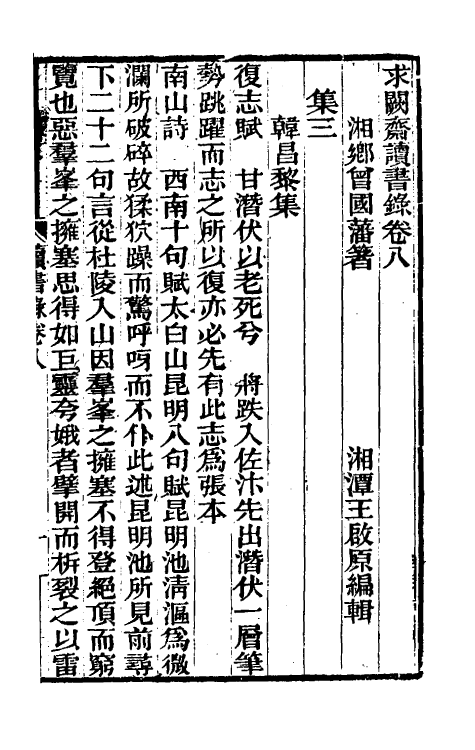 求闕齋讀書錄卷八
湘鄉曾國藩著　湘潭王啟原編輯
集三
韓昌黎集
復志賦　甘潛伏以老死兮　將跌入佐汴先出潛伏一層筆
勢跳躍而志之所以復亦必先有此志爲張本
南山詩　西南十句賦太白山昆明八句賦昆明池淸漚爲微
瀾所破碎故猱狖躁而驚呼呀而不仆此述昆明池所見前尋
下二十二句言從杜陵入山因羣峯之擁塞不得登絕頂而窮
覽也惡羣峯之擁塞思得如巨靈夸娥者擘開而析裂之以雷
讀書錄卷八
一